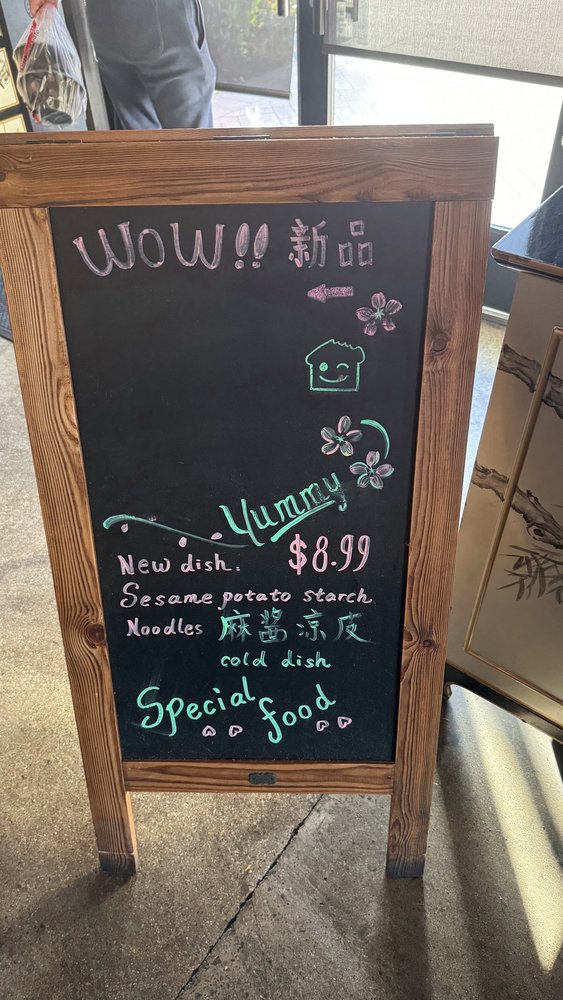 WOW!! 新品
Yummy
New dish: $8.99
Sesame potato starch
Noodles 麻酱凉皮
cold dish
Special food